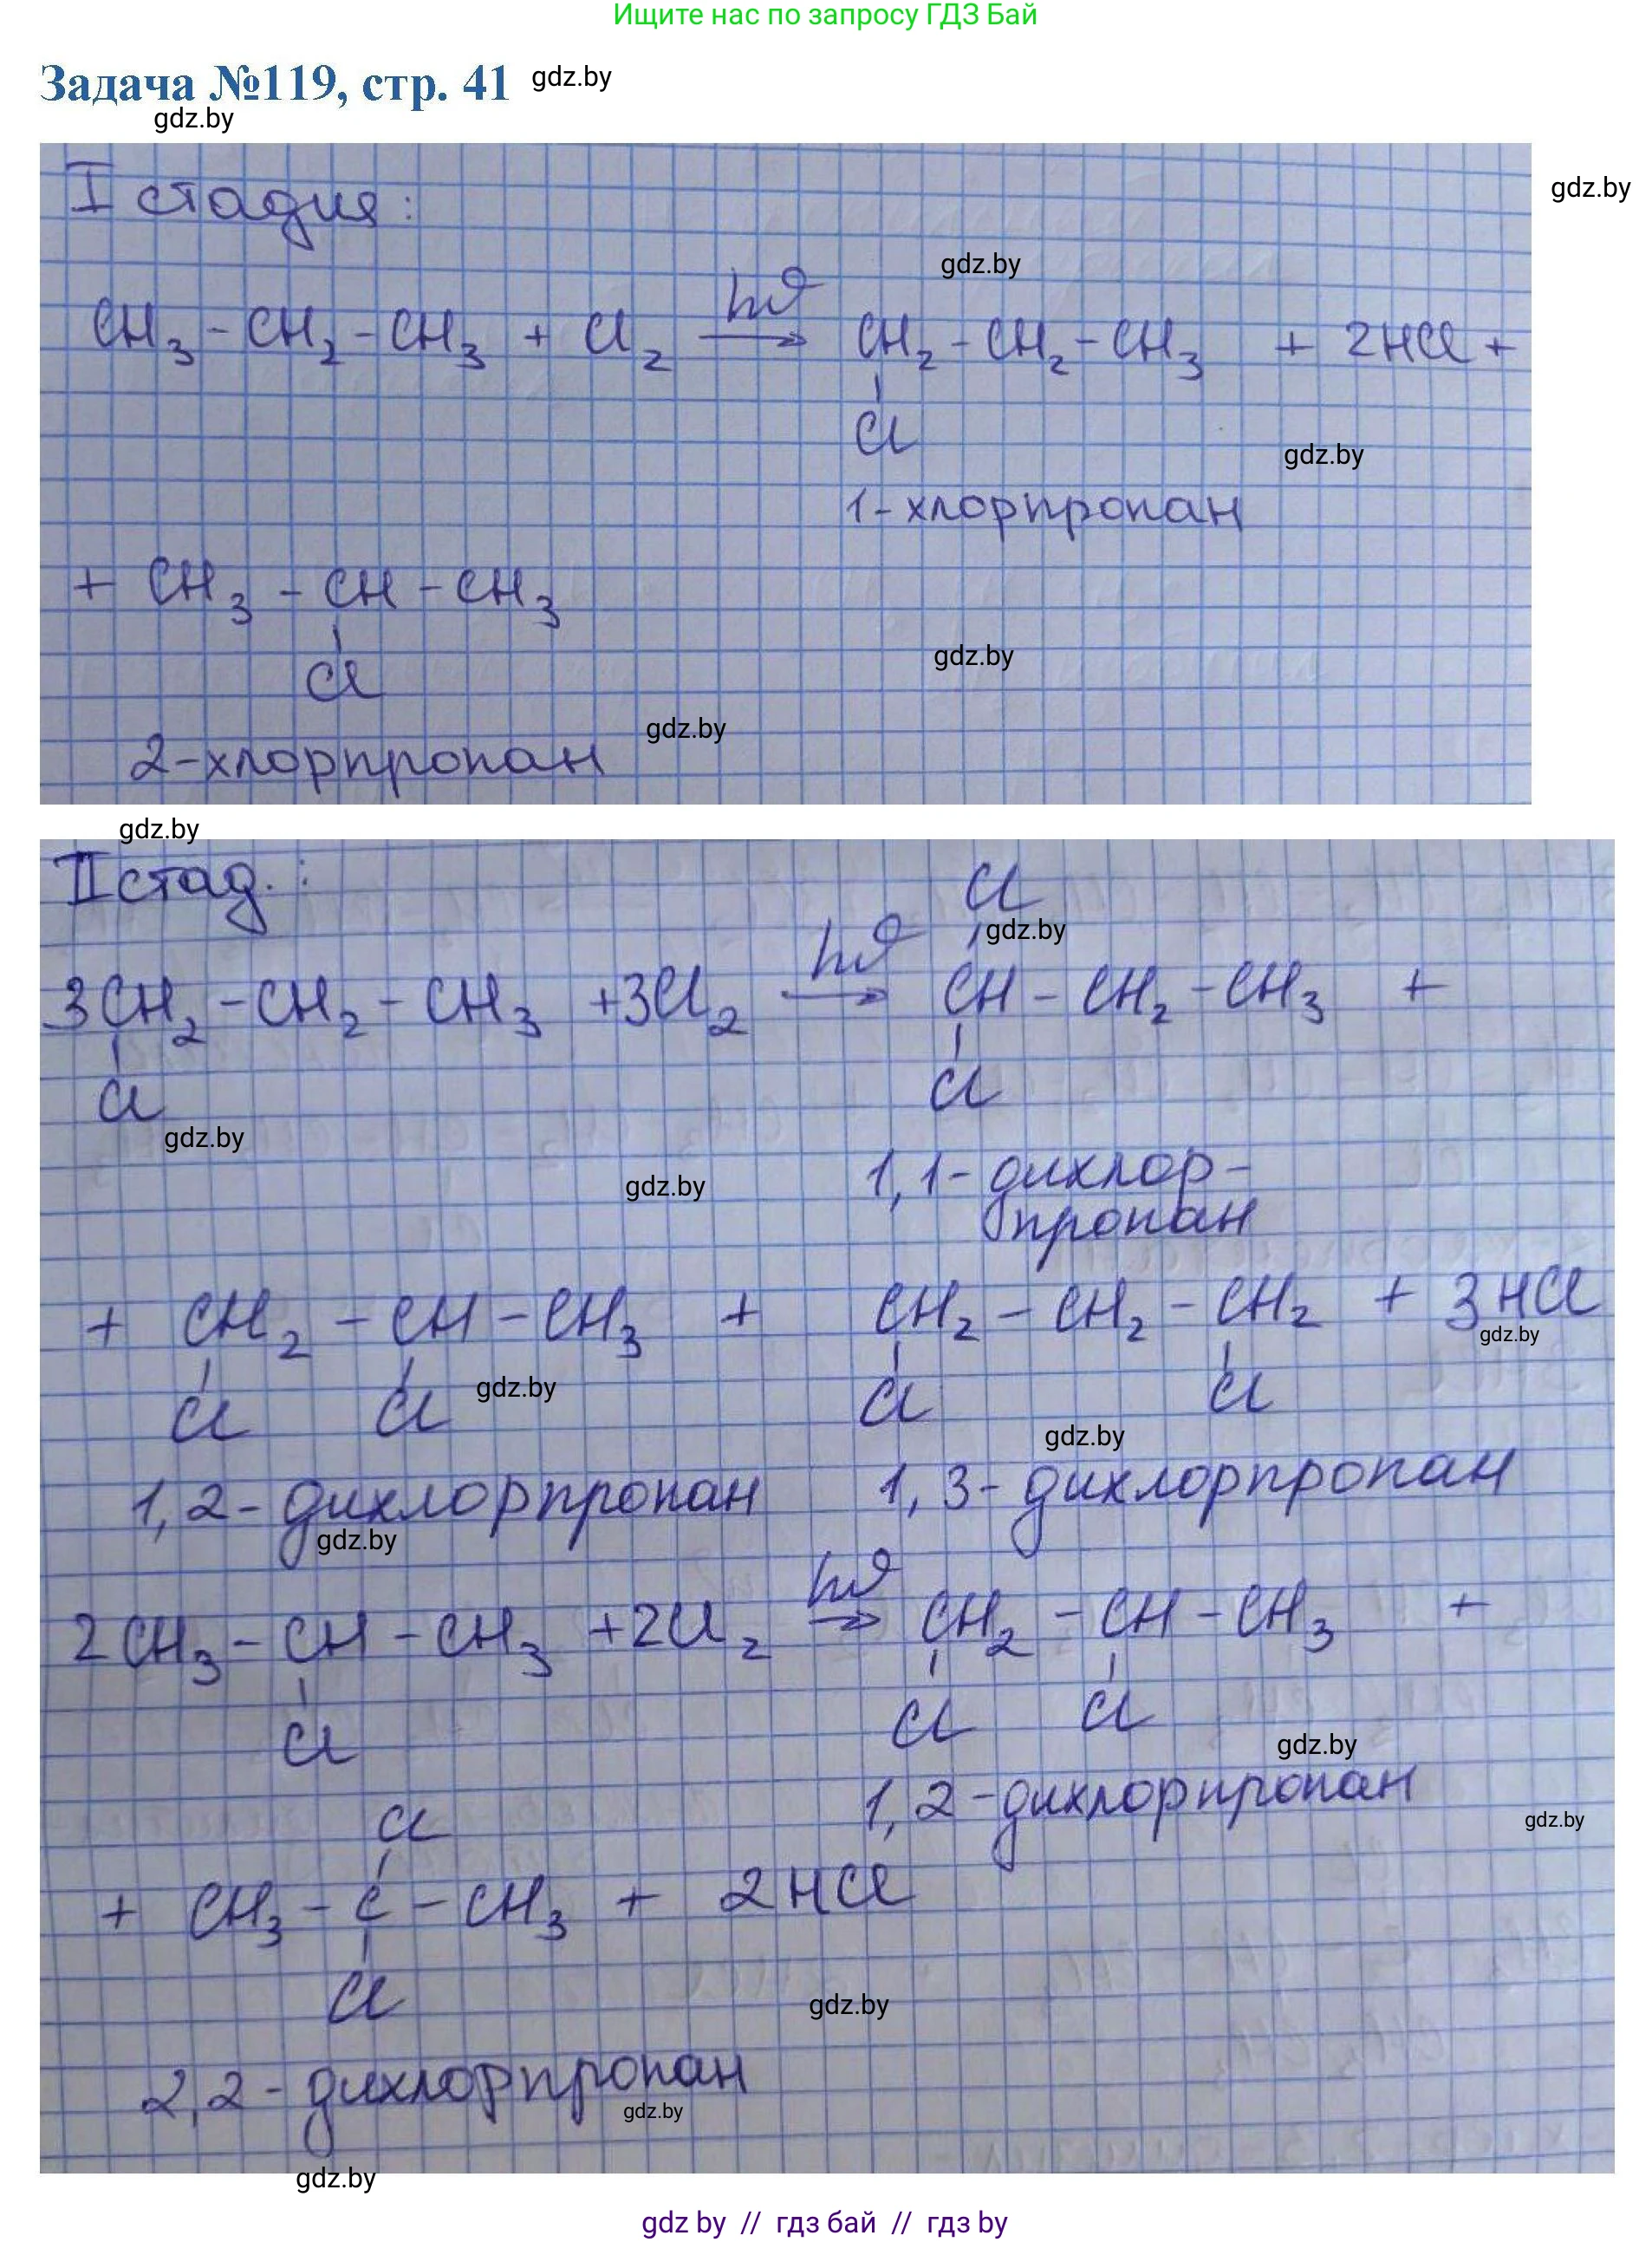 Ищите нас по запросу ГДЗ Бай
Задача №119, стр. 41 gdz.by
gdz.by
I стадия:
gdz.by
gdz.by
CH₃ - CH₂ - CH₃ + Cl₂ →hν CH₂ - CH₂ - CH₃ + 2HCl +
Cl
gdz.by
1-хлорпропан
+ CH₃ - CH - CH₃
gdz.by
Cl
gdz.by
2-хлорпропан
gdz.by
II стад.:
Cl
gdz.by
3CH₂ - CH₂ - CH₃ + 3Cl₂ →hν CH - CH₂ - CH₃ +
Cl Cl
gdz.by
gdz.by
1,1-дихлор-
пропан
+ CH₂ - CH - CH₃ + CH₂ - CH₂ - CH₂ + 3HCl
gdz.by
Cl Cl gdz.by Cl Cl
gdz.by
1,2-дихлорпропан 1,3-дихлорпропан
gdz.by
2CH₃ - CH - CH₃ + 2Cl₂ →hν CH₂ - CH - CH₃ +
Cl Cl Cl
gdz.by
1,2-дихлорпропан
gdz.by
Cl
+ CH₃ - C - CH₃ + 2HCl
Cl
gdz.by
2,2-дихлорпропан
gdz.by
gdz.by
gdz by // гдз бай // гдз by